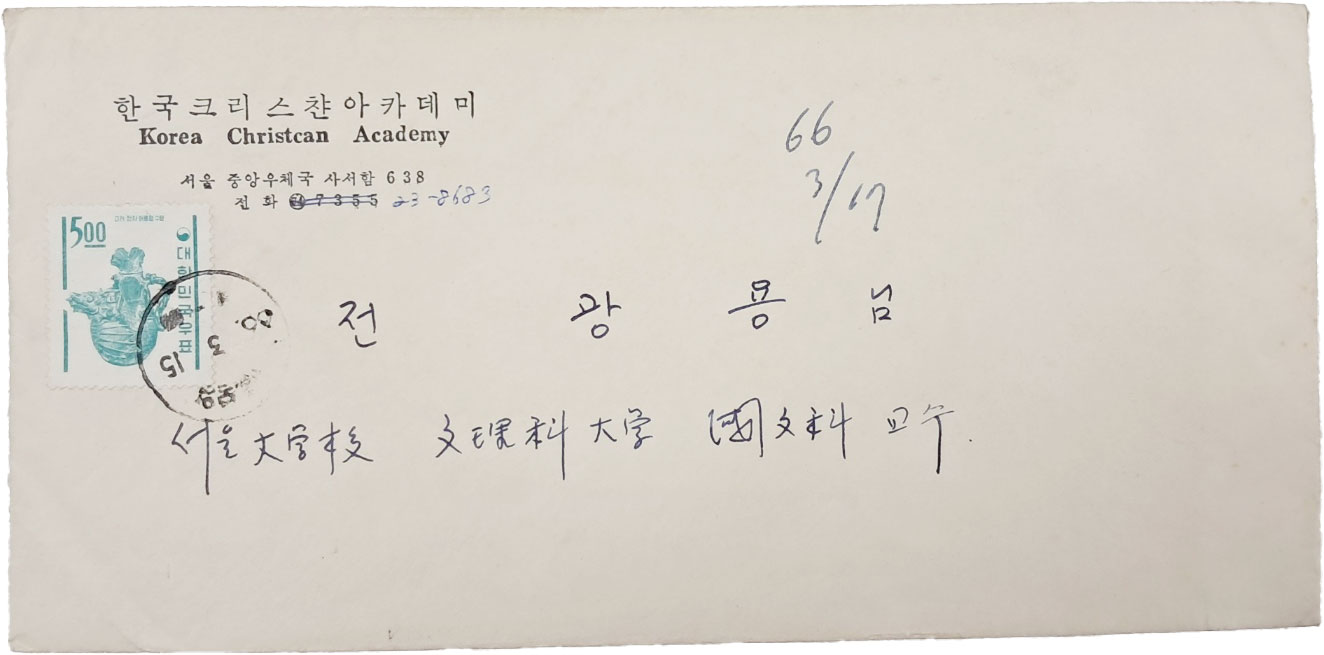 한국크리스챤아카데미
Korea Christcan Academy
서울 중앙우체국 사서함 638
전화 7355 23-8683
66
3/17
5.00
대한민국우표
3
15
전 광 용 님
서울大学校 文理科大学 國文科 교수.